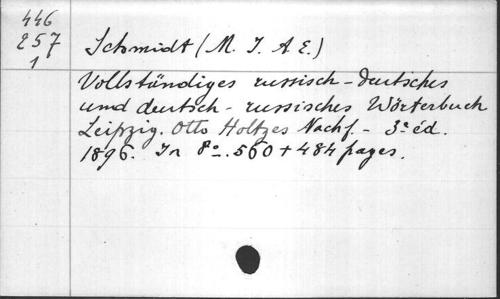 446
257
1
Schmidt (M. J. A E.)
Vollständiges russisch-deutsches
und deutsch-russisches Wörterbuch
Leipzig. Otto Holtzes Nachf. - 3e éd.
1896. In 8o. 560 + 484 pages.